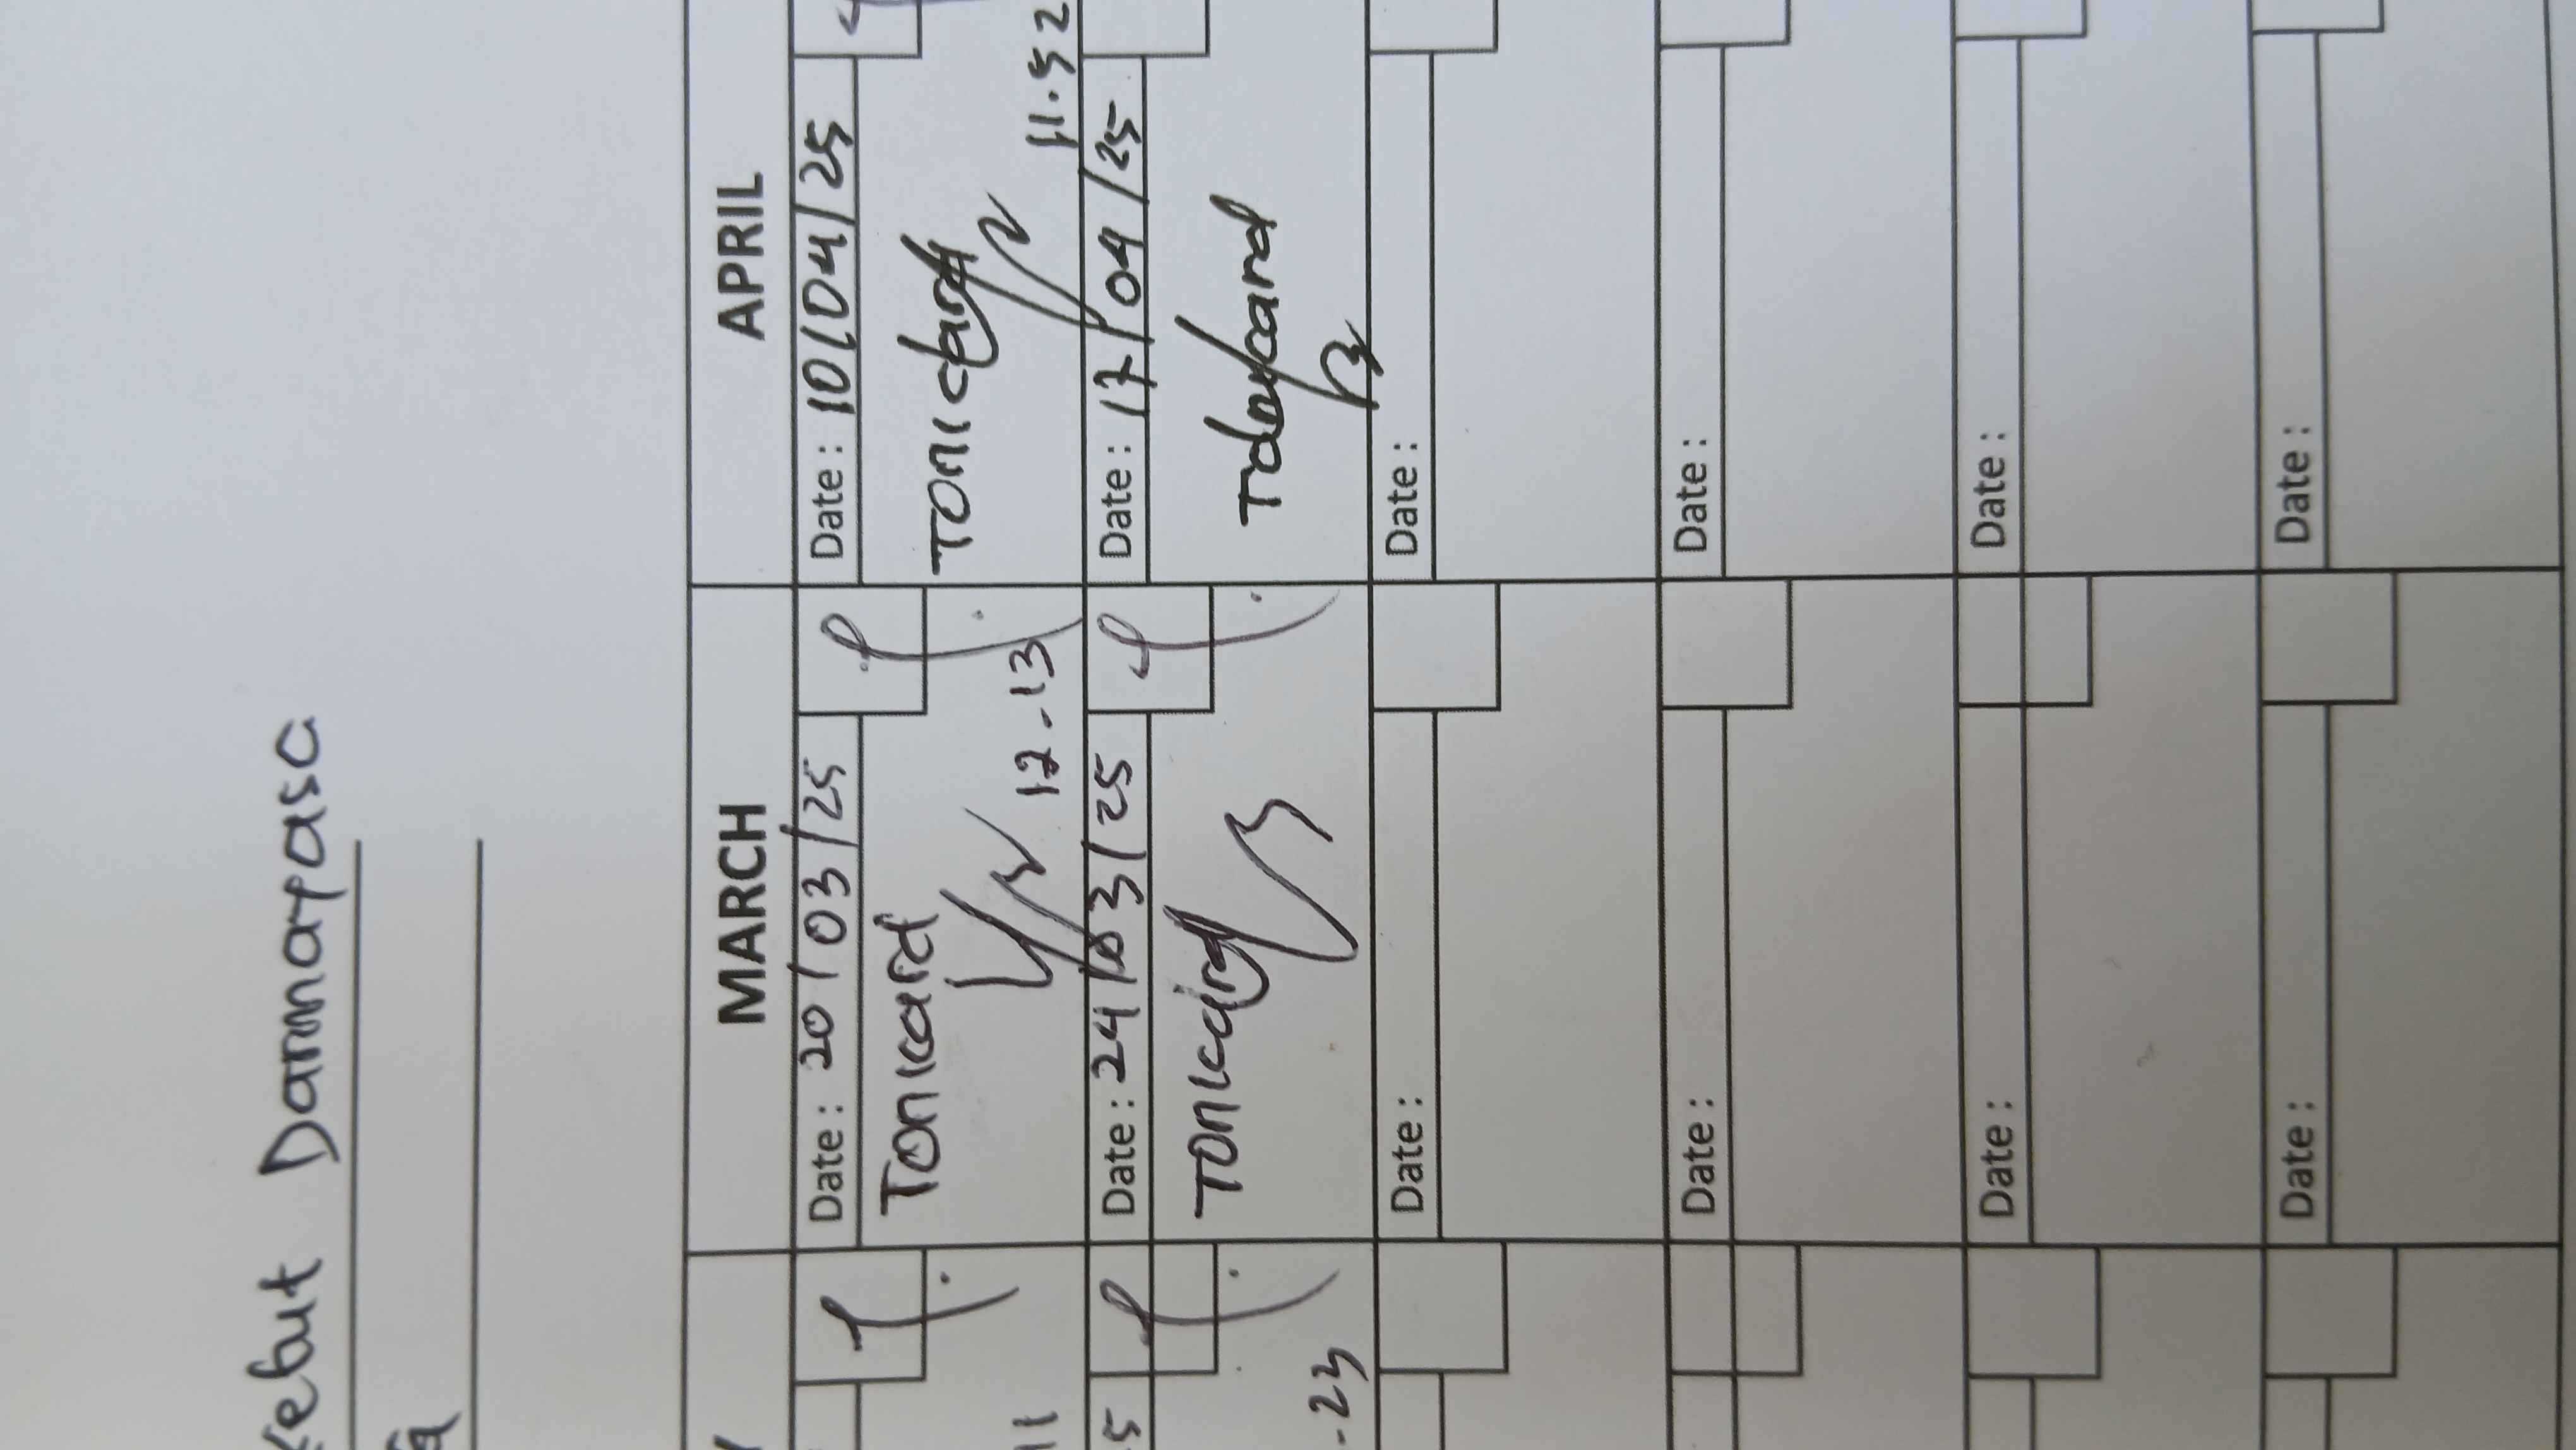 Kebut Danmarasa
MARCH APRIL
Date : 20/03/25 Date : 10/04/25
Tonicard
12.13 11.52
Date : 24/03/25 Date : 17/04/25
Tonicard
-23
Date : Date :
Date : Date :
Date : Date :
Date : Date :